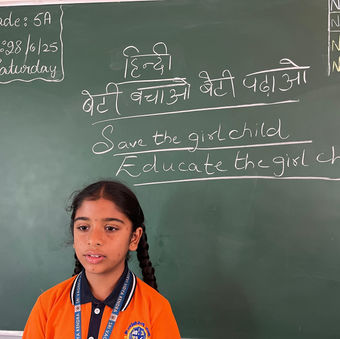 ade: 5A
: 28/6/25
aturday
हिन्दी
बेटी बचाओ बेटी पढ़ाओ
Save the girl child
Educate the girl ch